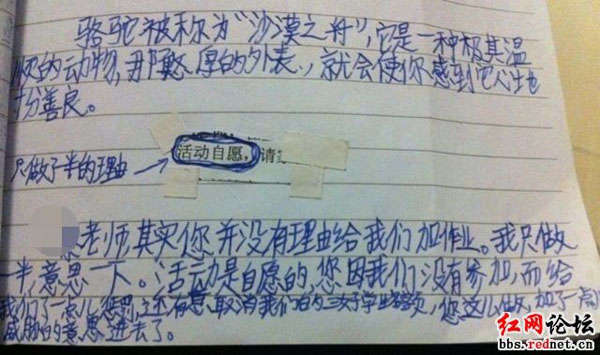 骆驼被称为"沙漠之舟",它是一种极其温
的动物,那憨厚的外表,就会使你感到它心地
善良。
只做了半的理由 → 活动自愿,请
老师其实你并没有理由给我们加作业。我只做
一半,意思一下。活动是自愿的,您因我们没有参加,而给
我们了一点儿 取消我们的 您这儿做,加了一点
威胁的意思进去了。
红网论坛
bbs.rednet.cn